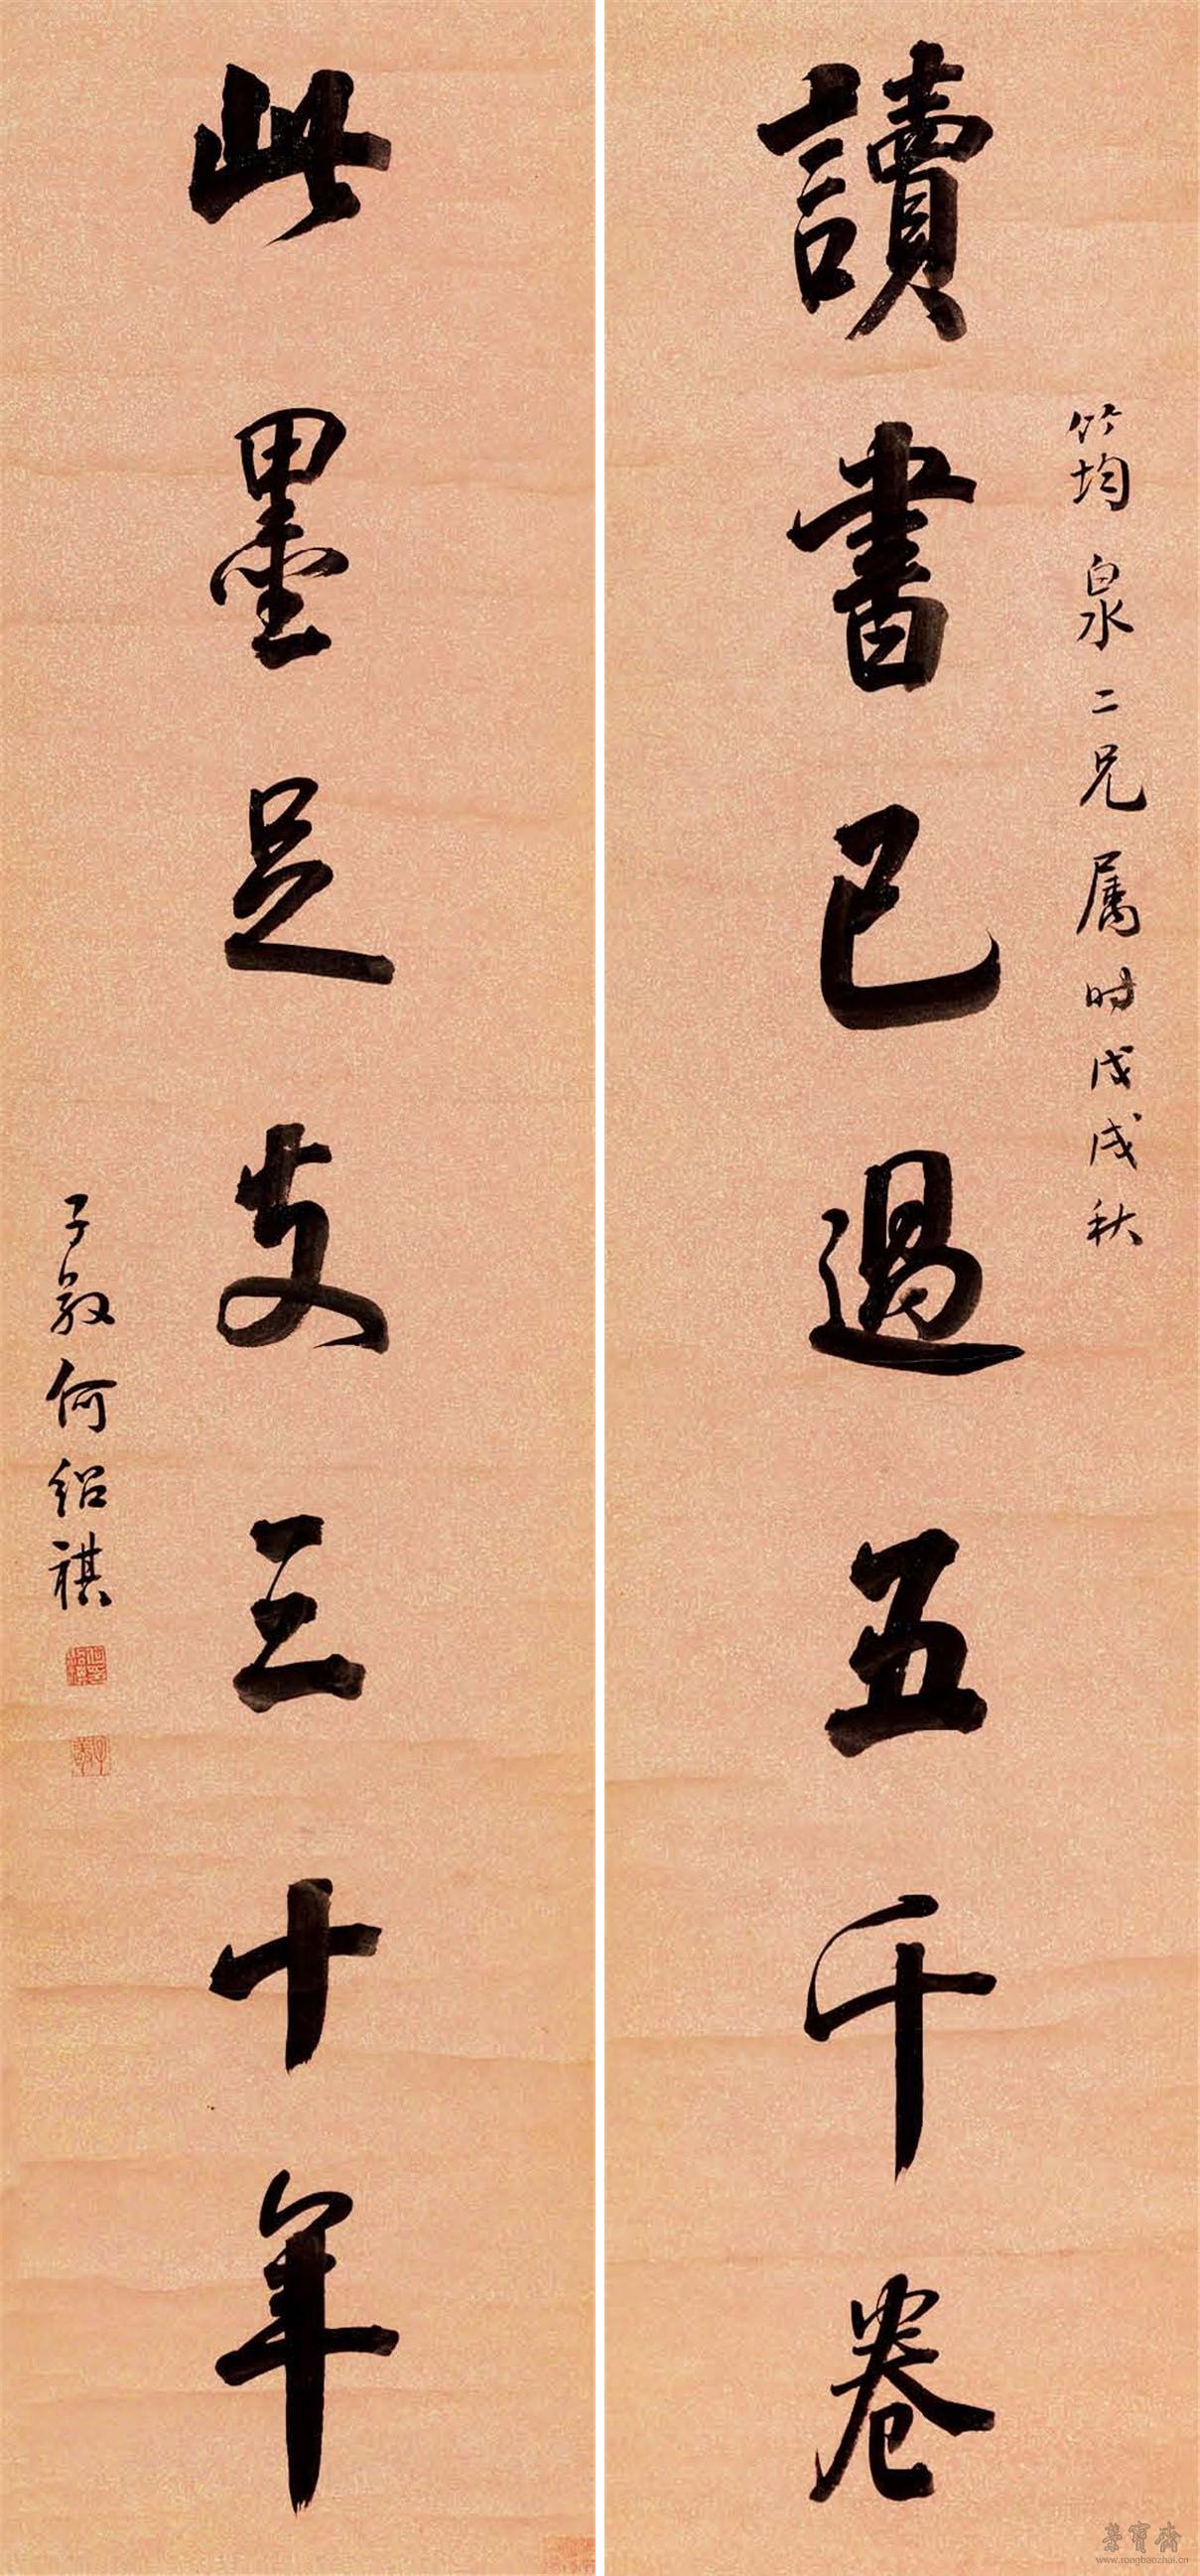 筠泉二兄属时戊戌秋
讀書已過五千卷
此墨足支三十年
子敦何绍祺
榮寶齋
www.rongbaozhai.cn